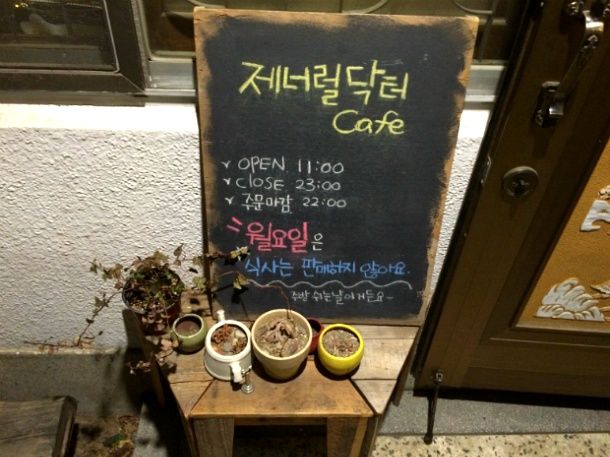 제너럴닥터
Cafe
✓ OPEN 11:00
✓ CLOSE 23:00
✓ 주문마감 22:00
월요일은
식사는 판매하지 않아요.
주방 쉬는날이거든요~